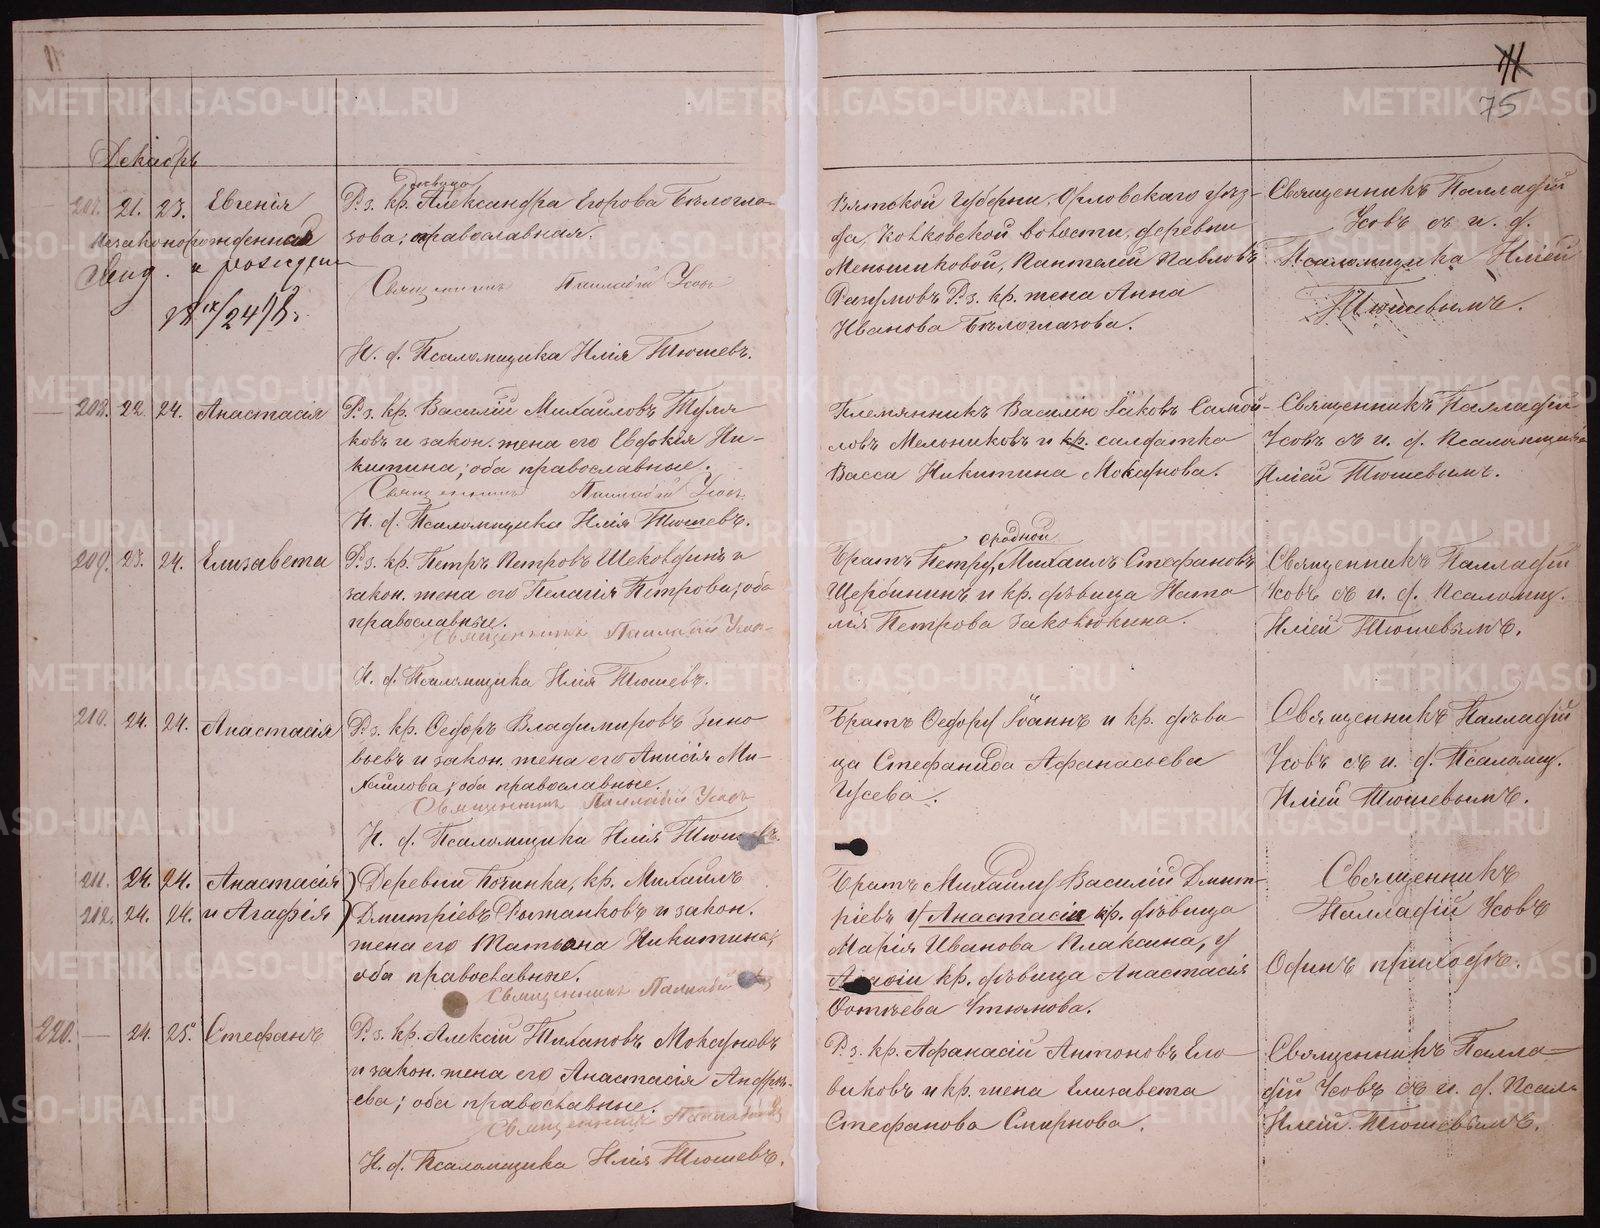 11
75
Декабрь
207. 21. 23. Евгенія
Незаконорожденная
28 IX/24
девица
Р. з. кр. Александра Егорова Бѣлогла-
зова; православная.
Священникъ Палладій Усовъ
И. д. Псаломщика Илія Тюшевъ.
Вятской Губерніи, Орловскаго уѣз-
да, Котковской волости, деревни
Меньшиковой, Пантелей Павловъ
Разумовъ Р. з. кр. жена Анна
Иванова Бѣлоглазова.
Священникъ Палладій
Усовъ съ и. д.
Псаломщика Иліей
Тюшевымъ.
208. 22. 24. Анастасія
Р. з. кр. Василій Михайловъ Туля
ковъ и закон. жена его Евдокія Ни-
китина; оба православные.
Священникъ Палладій Усовъ
И. д. Псаломщика Илія Тюшевъ.
Племянникъ Василію Іаковъ Самой-
ловъ Мельниковъ и кр. салдатка
Васса Никитина Мокрунова.
Священникъ Палладій
Усовъ съ и. д. Псаломщика
Иліей Тюшевымъ.
209. 23. 24. Елизавета
Р. з. кр. Петръ Петровъ Щеколдинъ и
закон. жена его Пелагія Петрова; оба
православные.
Священникъ Палладій Усовъ
И. д. Псаломщика Илія Тюшевъ.
сродной
Братъ Петру, Михаилъ Стефановъ
Щербининъ и кр. дѣвица Ната
лія Петрова Заколюкина.
Священникъ Палладій
Усовъ съ и. д. Псаломщ.
Иліей Тюшевымъ.
210. 24. 24. Анастасія
Р. з. кр. Ѳедоръ Владимировъ Зино
вьевъ и закон. жена его Анисія Ми-
хаилова; оба православные.
Священникъ Палладій Усовъ
И. д. Псаломщика Илія Тюшевъ.
Братъ Ѳедору Іоаннъ и кр. дѣви
ца Стефанида Афанасьева
Гусева.
Священникъ Палладій
Усовъ съ и. д. Псаломщ.
Иліей Тюшевымъ.
211. 24. 24. Анастасія
212. 24. 24. и Агафія
Деревни Починка, кр. Михаилъ
Дмитріевъ Рыжанковъ и закон.
жена его Татьяна Никитина;
оба православные.
Священникъ Палладій
Братъ Михаилу Василій Дмит-
ріевъ у Анастасіи кр. дѣвица
Марія Иванова Плаксина, у
Агафіи кр. дѣвица Анастасія
Фотѣева Утюмова.
Священникъ
Палладій Усовъ
Одинъ приходѣ.
220. — 24. 25. Стефанъ
Р. з. кр. Алексій Тихановъ Мокруновъ
и закон. жена его Анастасія Андре-
ева; оба православные.
Священникъ Палладій
И. д. Псаломщика Илія Тюшевъ.
Р. з. кр. Афанасій Антоновъ Ело
виковъ и кр. жена Елизавета
Стефанова Смирнова.
Священникъ Палла-
дій Усовъ съ и. д. Псал.
Иліей Тюшевымъ.
METRIKI.GASO-URAL.RU